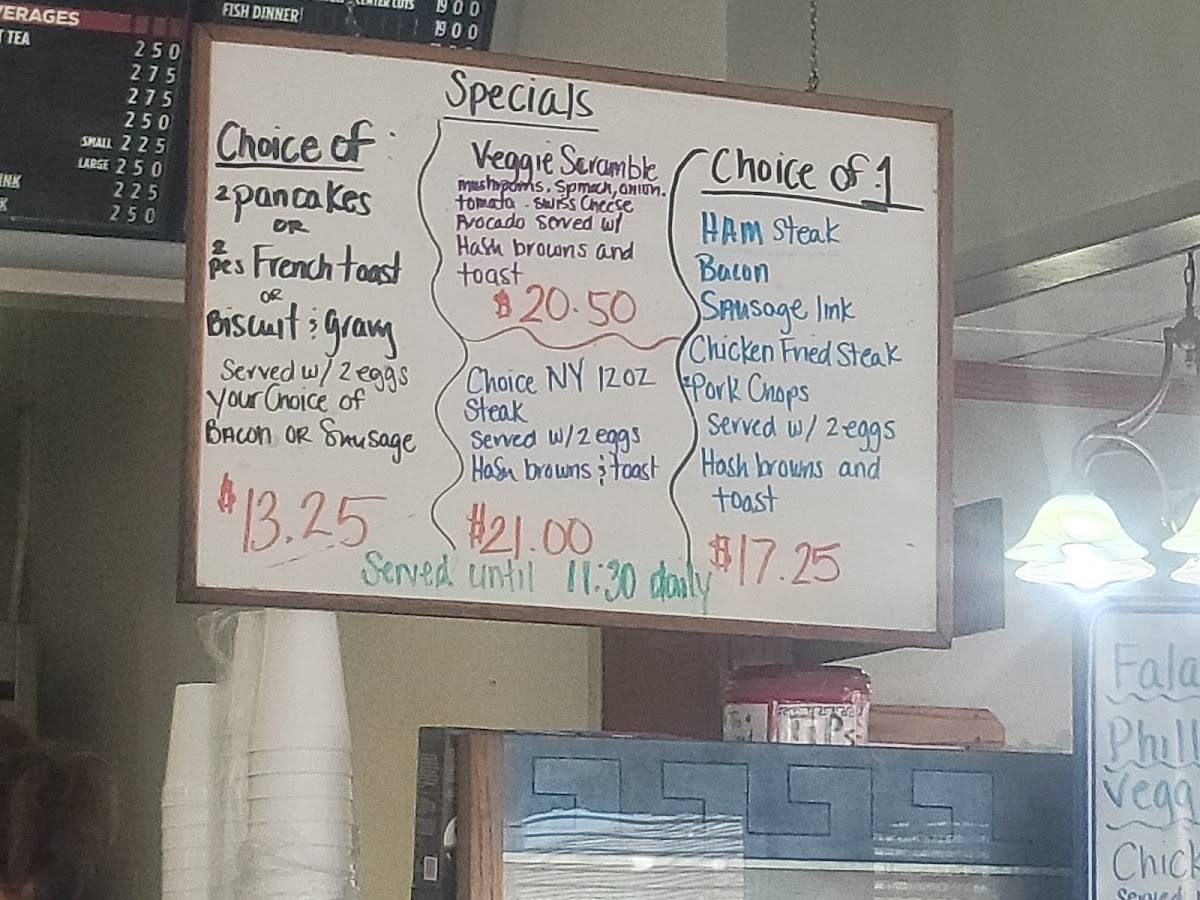 VERAGES
TEA
2 5 0
2 7 5
2 7 5
2 5 0
SMALL 2 2 5
LARGE 2 5 0
2 2 5
2 5 0
FISH DINNER
CENTER CUTS 19 0 0
19 0 0
Specials
Choice of:
2 pancakes
OR
2 pcs French toast
OR
Biscuit & gravy
Served w/ 2 eggs
your Choice of
BACON OR Sausage
$13.25
Veggie Scramble
mushrooms, Spinach, onion,
tomato - Swiss Cheese
Avocado Served w/
Hash browns and
toast
$20.50
Choice NY 12oz
Steak
Served w/ 2 eggs
Hash browns & toast
$21.00
Choice of 1
HAM Steak
Bacon
Sausage link
Chicken Fried Steak
2 Pork Chops
Served w/ 2 eggs
Hash browns and
toast
$17.25
Served until 11:30 daily
TIPS
Fala
Phill
Vegg
Chick
Served